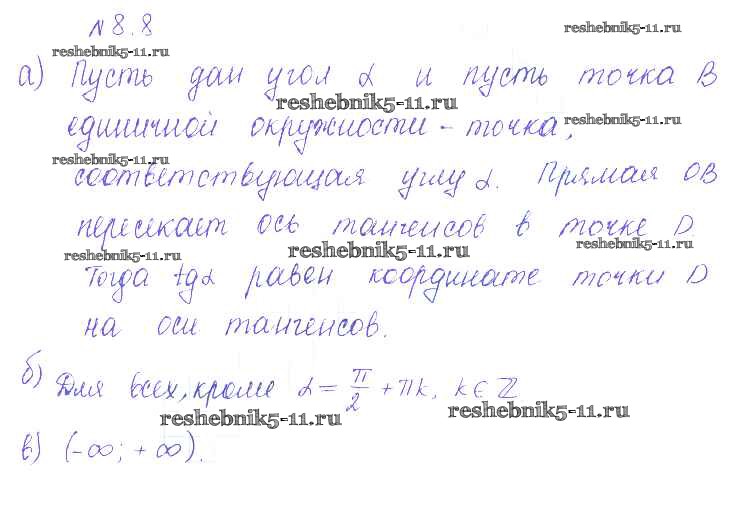 № 8.8
reshebnik5-11.ru
reshebnik5-11.ru
а) Пусть дан угол α и пусть точка В
reshebnik5-11.ru
единичной окружности - точка,
reshebnik5-11.ru
reshebnik5-11.ru
соответствующая углу α. Прямая ОВ
пересекает ось тангенсов в точке D.
reshebnik5-11.ru
reshebnik5-11.ru
reshebnik5-11.ru
Тогда tgα равен координате точки D
на оси тангенсов.
б) Для всех, кроме α = π/2 + πk, k ∈ ℤ
reshebnik5-11.ru
reshebnik5-11.ru
в) (-∞; +∞).